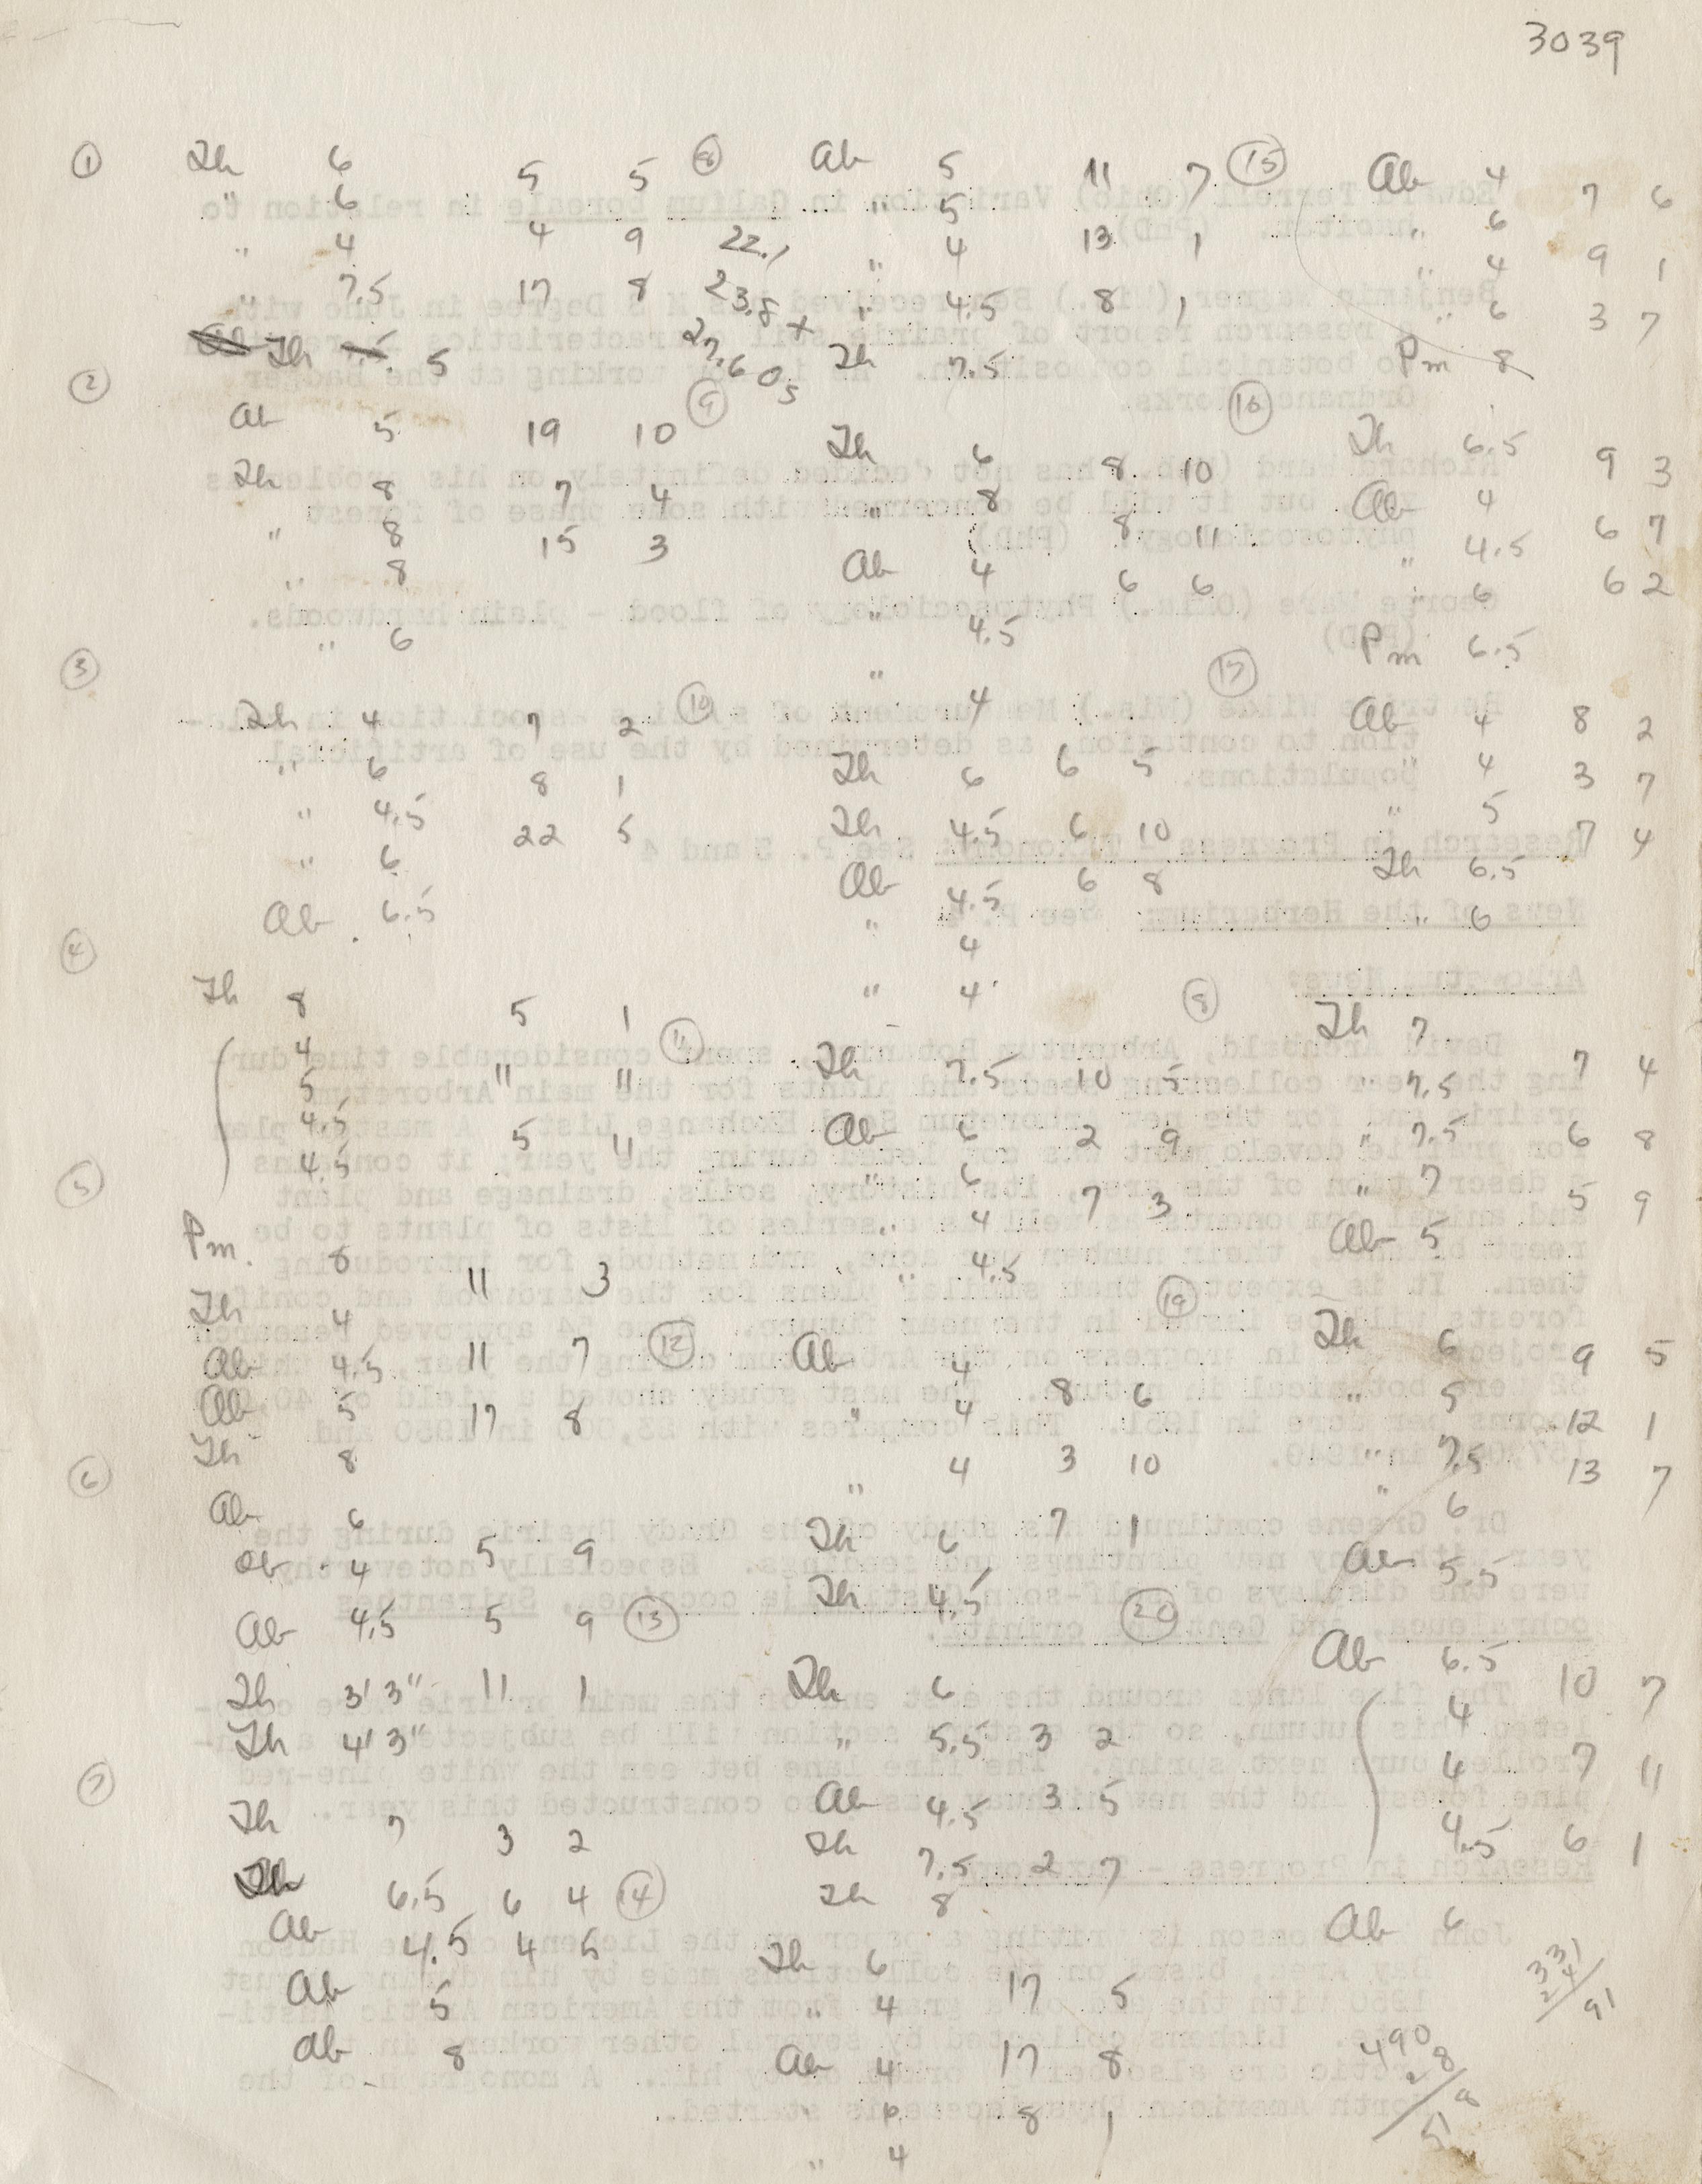 3039
① Th 6 5 5
" 6
" 4 4 9
" 7.5 17 8
Th 5
②
Ab 5 19 10
Th 8 7 4
" 8 15 3
" 8
" 6
③
Th 4 7 2
" 6 8 1
" 4.5 22 5
" 6
Ab 6.5
④
Th 8 5 1
4
5 " "
4.5
4.5 5 11
⑤
Pm. 8 11 3
Th 4
Ab 4.5 11 7
Ab 5 17 8
Th 8
⑥
Ab 6
Ab 4 5 9
Ab 4.5 5 9
Th 3' 3" 11 1
Th 4' 3"
⑦
Th 7 3 2
Th 6.5 6 4
Ab 4.5 4 5
Ab 5
Ab 8
⑧ Ab 5 11 7
" 5
22.1 " 4 13 1
23.8 x " 4.5 8 1
27.6 Th 7.5
⑨
Th 6 8 10
" 8 8 11
Ab 4 6 6
" 4.5
" 4
⑩
Th 6 6 5
Th 4.5 6 10
Ab 4.5 6 8
" 4
" 4
⑪
Th 7.5 10 5
Ab 6 2 9
" 6
" 4 7 3
" 4.5
⑫ Ab 4
" 4 8 6
" 4 3 10
Th 6 7 1
Th 4.5
⑬
Th 6
" 5.5 3 2
Ab 4.5 3 5
Th 7.5 2 7
Th 8
⑭
Th 6
" 4 17 5
Ab 4 17 8
" 6 8 1
" 4
⑮ Ab 4 7 6
" 6
" 4 9 1
" 6 3 7
Pm 8
⑯
Th 6.5 9 3
Ab 4
" 4.5 6 7
" 6 6 2
Pm 6.5
⑰
Ab 4 8 2
" 4 3 7
" 5 7 4
Th 6.5
" 6
⑧
Th 7
" 7.5 7 4
" 7.5 6 8
" 7 5 9
Ab 5
⑲
Th 6 9 5
" 5 12 1
" 7.5 13 7
" 6
Ab 5.5
⑳
Ab 6.5 10 7
4
4 7 11
4.5 6 1
Ab 6